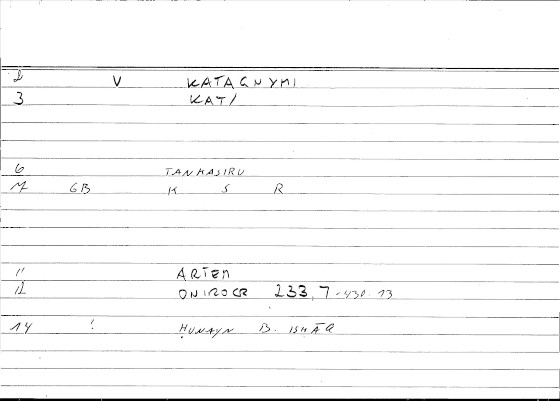 2 V KATAGNYMI
3 KAT/
6 TANKASIRU
7 GB K S R
11 ARTEM
12 ONIROCR 233,7-430.13
14 ! ḤUNAYN B. ISḤĀQ